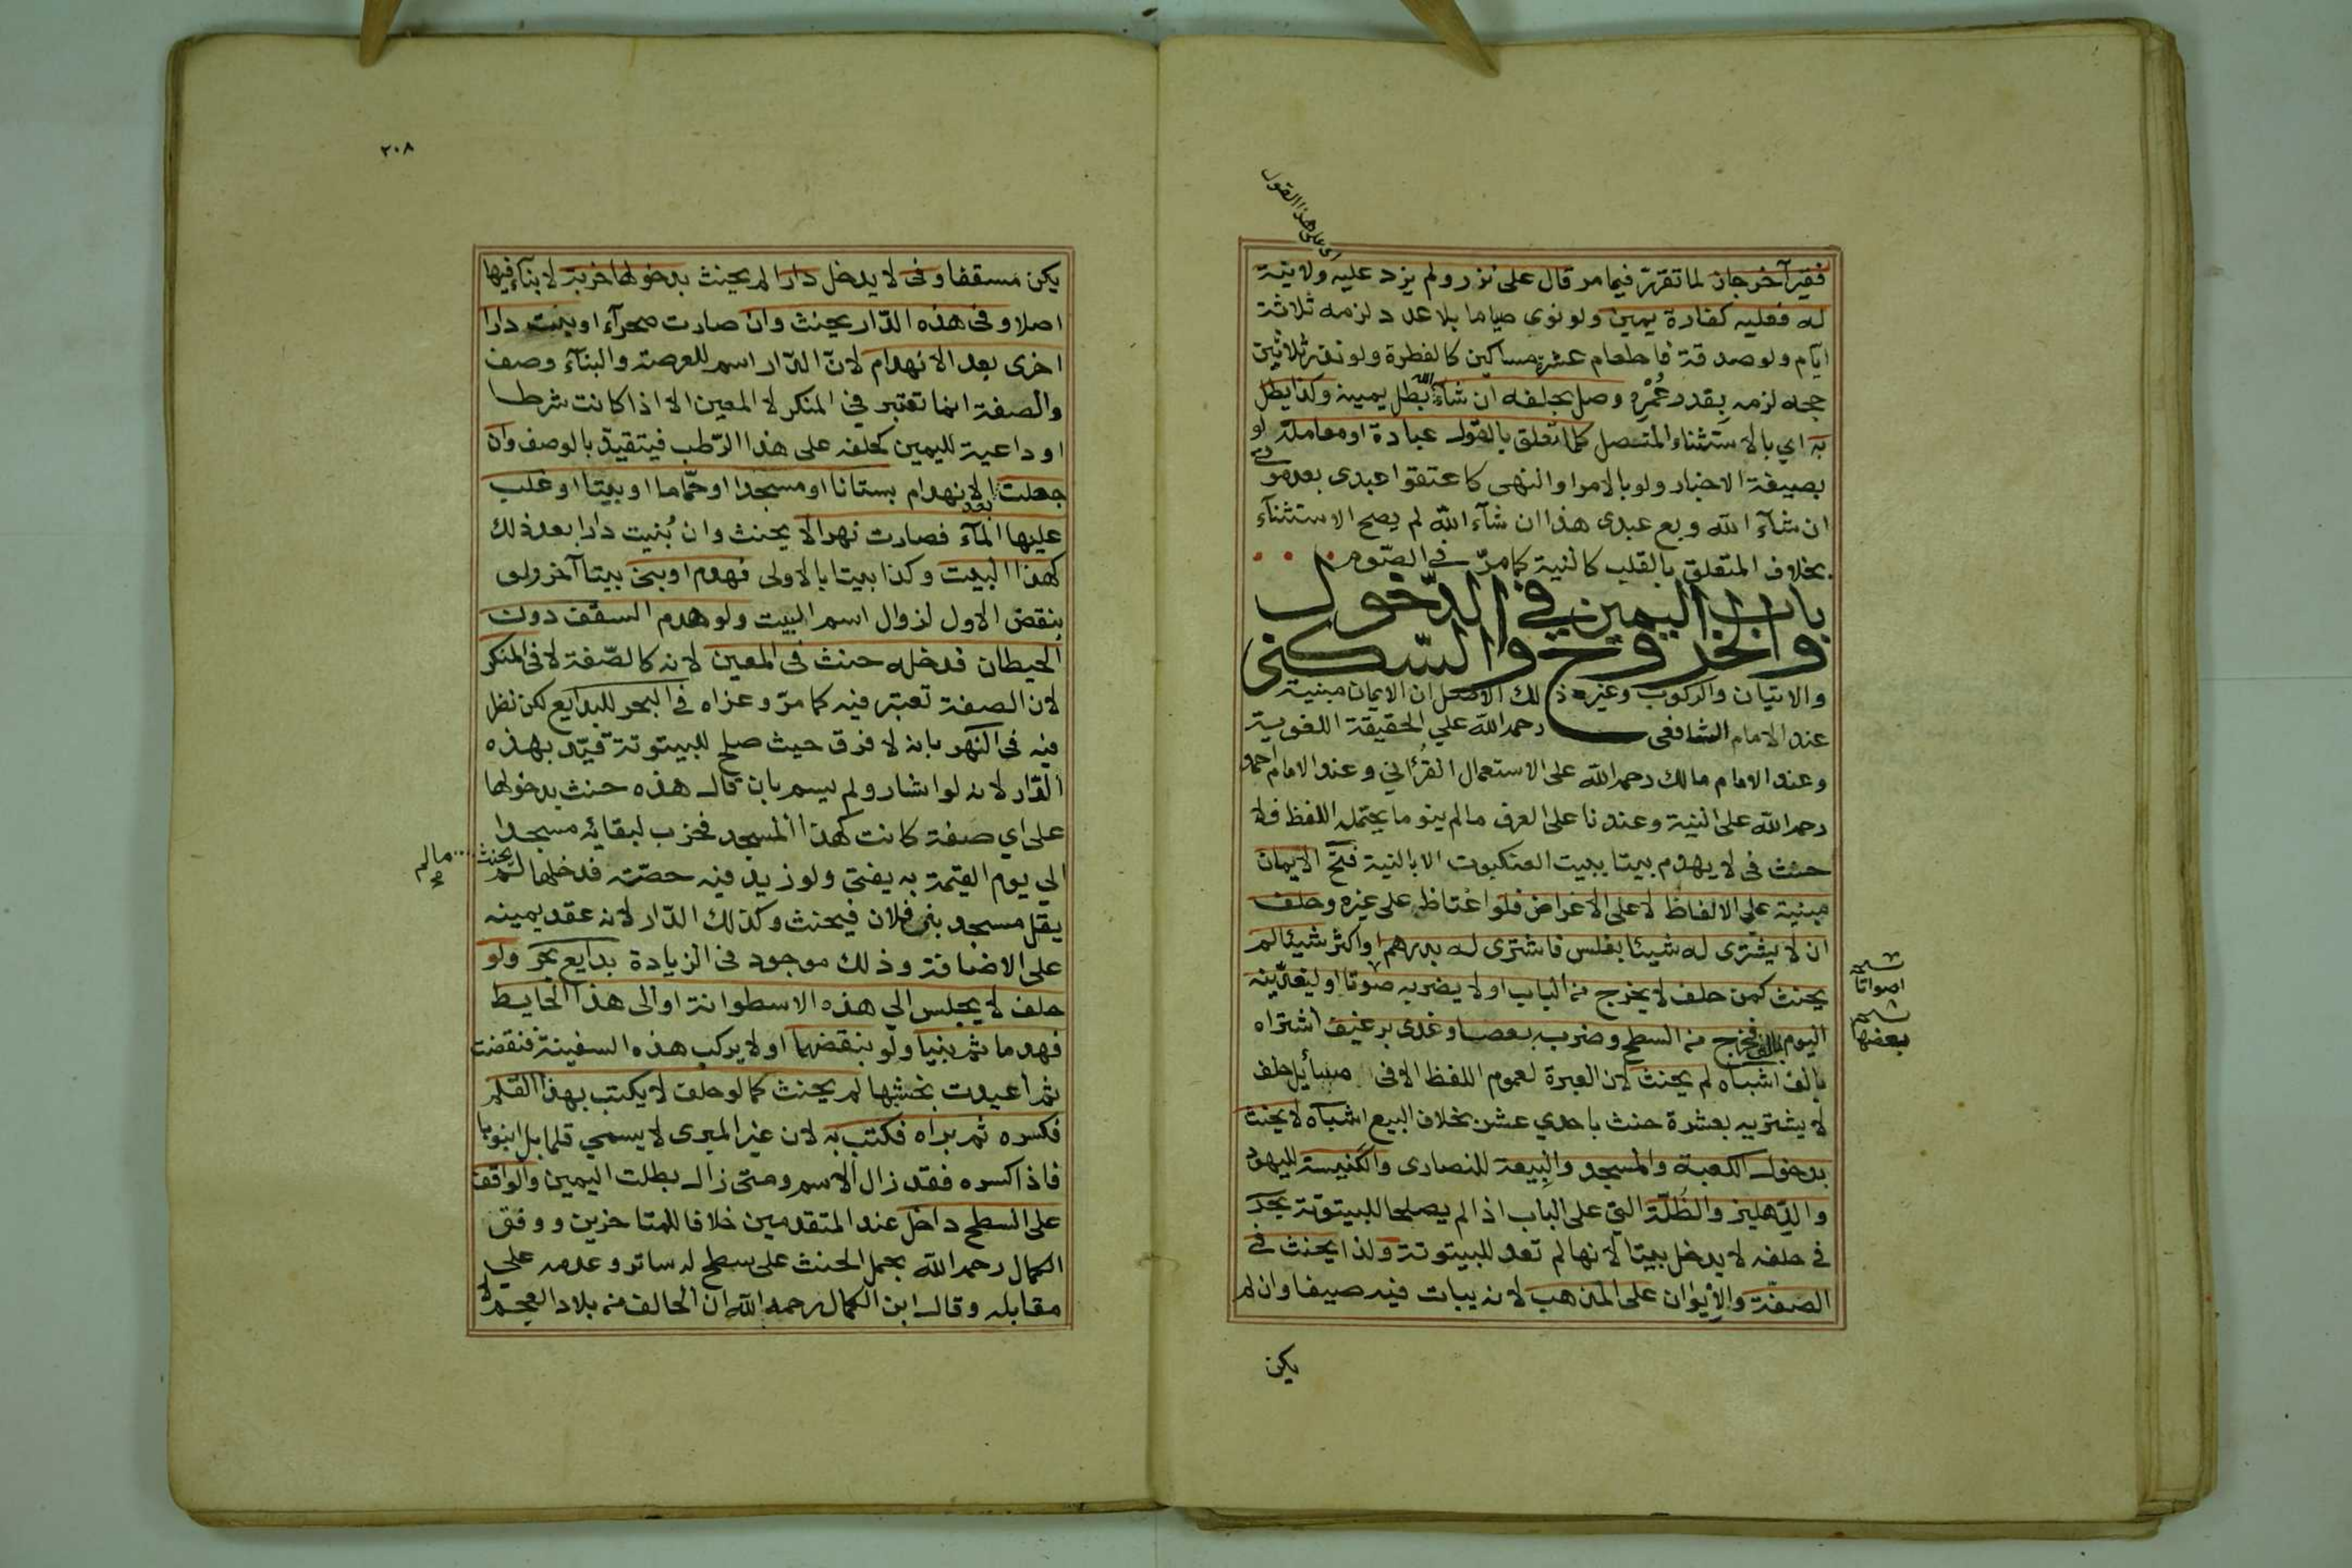 اي على هذا القول
فقير آخر جاز لما تقرر فيما مر قال على نذر ولم يزد عليه ولا نية
له فعليه كفارة يمين ولو نوى صياما بلا عدد لزمه ثلاثة
ايام ولو صدقة فاطعام عشرة مساكين كالفطرة ولو نذر ثلاثين
حجه لزمه بقدر عُمْرِه وصل بحلفه ان شاء الله بطل يمينه وكذا يطل
به اي بالاستثناء المتصل كلما تعلق بالقول عبادة او معاملة لو
بصيغة الاخبار ولو بالامر او النهى كاعتقوا عبدى بعد موتي
ان شآء الله وبع عبدى هذا ان شآء الله لم يصح الاستثنآء
بخلاف المتعلق بالقلب كالنية كما مرّ في الصّوم
باب اليمين في الدّخول
والخروج والسّكنى
والاتيان والركوب وغيره ذلك الاصل ان الايمان مبنية
عند الامام الشافعى رحمه الله علي الحقيقة اللغوية
وعند الامام مالك رحمه الله على الاستعمال القرأني وعند الامام احمد
رحمه الله على النية وعندنا على العرف مالم ينو ما يحتمله اللفظ فلا
حنث فى لا يهدم بيتا ببيت العنكبوت الا بالنية فتح الايمان
مبنية علي الالفاظ لا على الاغراض فلو اغتاظ على غيره وحلف
ان لا يشترى له شيئا بفلس فاشترى له بدرهم او اكثر شيئا لم
يحنث كمن حلف لا يخرج من الباب او لا يضربه صوتا او ليغدّينه
اصواتا
اليوم بالف فخرج من السطح وضرب بعصا وغدى برغيف اشتراه
بعضها
بالف اشباه لم يحنث لان العبرة لعموم اللفظ الا فى مسأيل حلف
لا يشتريه بعشرة حنث باحدي عشر بخلاف البيع اشباه لا يحنث
بدخول الكعبة والمسجد والبِيعة للنصارى والكنيسة لليهود
والدّهليز والظلّة التي على الباب اذا لم يصلحا للبيتوتة بحر
في حلفه لا يدخل بيتا لانها لم تعد للبيتوتة ولذا يحنث في
الصفّة والاِيْوان على المذهب لانه يبات فيه صيفا وان لم
يكن
٢٠٨
يكن مسقفا وفى لا يدخل دارا لم يحنث بدخولها خربة لا بنآء فيها
اصلا وفى هذه الدّار يحنث وان صارت صحرآء او بنيت دارا
اخرى بعد الانهدام لانّ الدّار اسم للعرصة والبنآء وصف
والصفة انما تعتبر في المنكر لا المعين الا اذا كانت شرطا
او داعية لليمين كحلفه على هذا الرّطب فيتقيد بالوصف وان
جعلت بعد الانهدام بستانا او مسجدا او حمّاما او بيتا او غلب
عليها المآء فصارت نهرا لا يحنث وان بُنيت دارا بعد ذلك
كهذا البيت وكذا بيتا بالاولى فهدم او بنى بيتا آخر ولو
بنقض الاول لزوال اسم البيت ولو هدم السقف دون
الحيطان فدخله حنث فى المعين لانه كالصّفة لا فى المنكر
لان الصفة تعتبر فيه كما مرّ وعزاه في البحر للبدايع لكن نظر
فيه فى النهر بانه لا فرق حيث صلح للبيتوتة قيّد بهذه
الدّار لانه لو اشار ولم يسم بان قال هذه حنث بدخولها
على اي صفة كانت كهذا المسجد فخرب لبقائه مسجدا
الي يوم القيمة به يفتى ولو زيد فيه حصّته فدخلها لم يحنث
مالم
يقل مسجد بنى فلان فيحنث وكذلك الدّار لانه عقد يمينه
على الاضافة وذلك موجود فى الزيادة بدايع بحر ولو
حلف لا يجلس الي هذه الاسطوانة او الى هذا الحايط
فهدما ثم بنيا ولو بنقضهما او لا يركب هذه السفينة فنقضت
ثم اعيدت بخشبها لم يحنث كما لو حلف لا يكتب بهذا القلم
فكسره ثم براه فكتب به لان غير المبرى لا يسمي قلما بل انبوبا
فاذا كسره فقد زال الاسم ومتى زال بطلت اليمين والواقف
على السطح داخل عند المتقدمين خلافا للمتاخرين ووفق
الكمال رحمه الله بحمل الحنث على سطح له ساتر وعدمه علي
مقابله وقال ابن الكمال رحمه الله ان الحالف من بلاد العجم لا